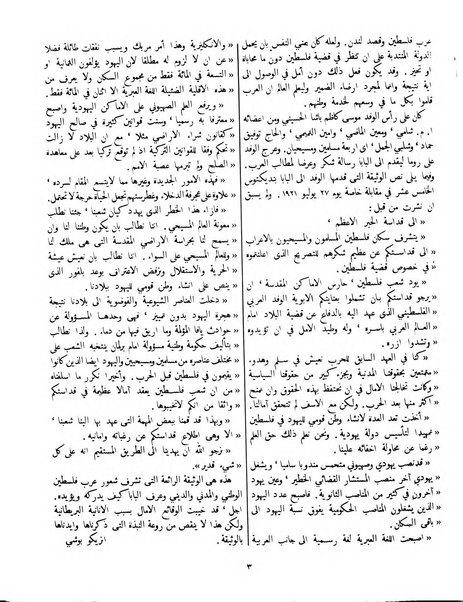 عرب فلسطين وقصد لندن. ولعله كان غنى النفس بان يحمل
الدولة المنتدبة على ان تنظر في قضية فلسطين من دون ما محاباة
او تحيز. ولكن الوفد ذهب بدون أدنى أمل في الوصول الى
اية نتيجة وانما لمجرد ارضاء الضمير وليعلم العالم ان العرب
قاموا بكل ما في وسعهم لخدمة وطنهم.
كان على رأس الوفد موسى كاظم باشا الحسيني ومن اعضائه
ا. م. شامى، ومعين الماضي، وامين التميمي، والحاج توفيق
حماد، وشبلي الجمل، اى مسلمون ومسيحيون. وعرج الوفد
على روما ليقدم الى البابا رسالة شكر وعرضا لمطالب العرب.
وفيما يلى نص الوثيقة التى قدمها الوفد الى البابا بنديكتوس
الخامس عشر في مقابلة خاصة يوم ٢٧ يوليو ١٩٢١. ولم يسبق
ان نشرت من قبل:
« الى قداسة الحبر الاعظم،
« يتشرف سكان فلسطين المسلمون والمسيحيون بالاعراب
« الى قداستكم عن عظيم شكرهم للتصريح الذى اعلنتموه
« في خصوص قضية فلسطين.
« يود شعب فلسطين، حارس الاماكن المقدسة، ان
« يرجو قداستكم بان تشملوا بعنايتكم الابوية الوفد العربي
« الفلسطيني الذى عهد اليه بالدفاع عن قضية فلسطين امام
« العالم العربي باسره، وله وطيد الامل في ان تؤيدوه
« وتشدوا ازره.
« كنا في العهد السابق للحرب نعيش في سلم وهدوء،
« متمتعين بحقوقنا المدنية وبجزء كبير من حقوقنا السياسية
« وكانت تخالجنا الامال في ان نحتفظ بهذه الحقوق وان يتسع
« نطاقها بعد الحرب. ولكن مع الاسف لم تتحقق آمالنا.
« أخذت تعد العدة لانشاء وطن قومي لليهود في فلسطين
« تمهيدا لتأسيس دولة يهودية. ونحن لا ندرك حق العلم
« مرحلة من اخفائه علينا.
« قد نصب يهودي وصهيوني متحمس مندوبا ساميا، ويشغل
« يهودي آخر منصب المستشار القضائي الخطير، وعهد الى
« آخرين في كثير من المناصب الثانوية. فاصبح عدد اليهود
« الذين يشغلون المناصب الحكومية يفوق نسبة اليهود الى
« باقى السكان.
« اصبحت اللغة العبرية لغة رسمية الى جانب العربية
« والانكليزية وهذا أمر مربك ويسبب نفقات طائلة فضلا
« عن انه لا لزوم له مطلقا لان اليهود يؤلفون الثمانية او
« التسعة في المائة فقط من مجموع السكان ولا يعرف من
« هذه الاقلية الضئيلة اللغة العبرية الا اثنان في المائة فقط.
« ويرفع العلم الصهيونى على الاماكن اليهودية واصبح
« معترفا به رسميا، وسنت قوانين كثيرة في صالح اليهود
« كقانون شراء الاراضي مثلا، مع ان البلاد لا زالت
« بحكم وفقا للقوانين التركية اذ لم توقع تركيا بعد على معاهدة
« الصلح ولم تبرمها عصبة الامم.
« فهذه الامور الجديدة وغيرها مما لا يتسع المقام لسرده،
« علاوة على عجرفة الدخلاء وغطرستهم تجعل الحياة حرجة لا تحتمل.
« فازاء هذا الخطر الذى يهدد كيان شعبنا، جئنا نطلب
« معونة العالم المسيحي. اننا نطالب بان يكون وطننا لنا وان
« يسمح لنا بحراسة الاراضى المقدسة التى هى ملك لنا
« وللعالم المسيحى على السواء. اننا نطالب بان نعيش عيشة
« الحرية والاستقلال ونرفض الاعتراف بوعد بلفور الذى
« ينص على انشاء وطن قومي لليهود ببلادنا.
« دخلت العناصر الشيوعية والفوضوية الى بلادنا نتيجة
« هجرة اليهود بدون تمييز، فهى وحدها المسؤولة عن
« حوادث يافا المؤلمة وما اريق فيها من دماء. ولذا نطالب
« بتأليف حكومة وطنية مسؤولة امام برلمان ينتخبه الشعب على
« مختلف عناصره من مسلمين ومسيحيين واليهود ايضا الذين كانوا
« يقيمون في فلسطين قبل الحرب. وأخيرا نكرر ما اسلفناه
« من ان شعب فلسطين يعقد أكبر الامال في قداستكم
« واثقا من انكم لا تخيبوها.
« هذا وقد قمنا ببعض المهمة التى عهد بها الينا شعبنا،
« الا وهى اطلاع قداستكم عن رغباته وامانيه.
« نرجو الله ان يهدينا الى الطريق المستقيم انه على كل
« شيء قدير».
هذه هى الوثيقة الرائعة التى تشرف شعور عرب فلسطين
الوطنى والمدنى والدينى وعرف البابا كيف يدركه ويؤيده.
اجل، قد خيبت الوقائع الآمال بسبب الانانية البريطانية
ولكن هذا لن ينقص من روعة النبذة التى ذكرناها وايدناها
بالوثيقة.
انريكو بوشي
٣